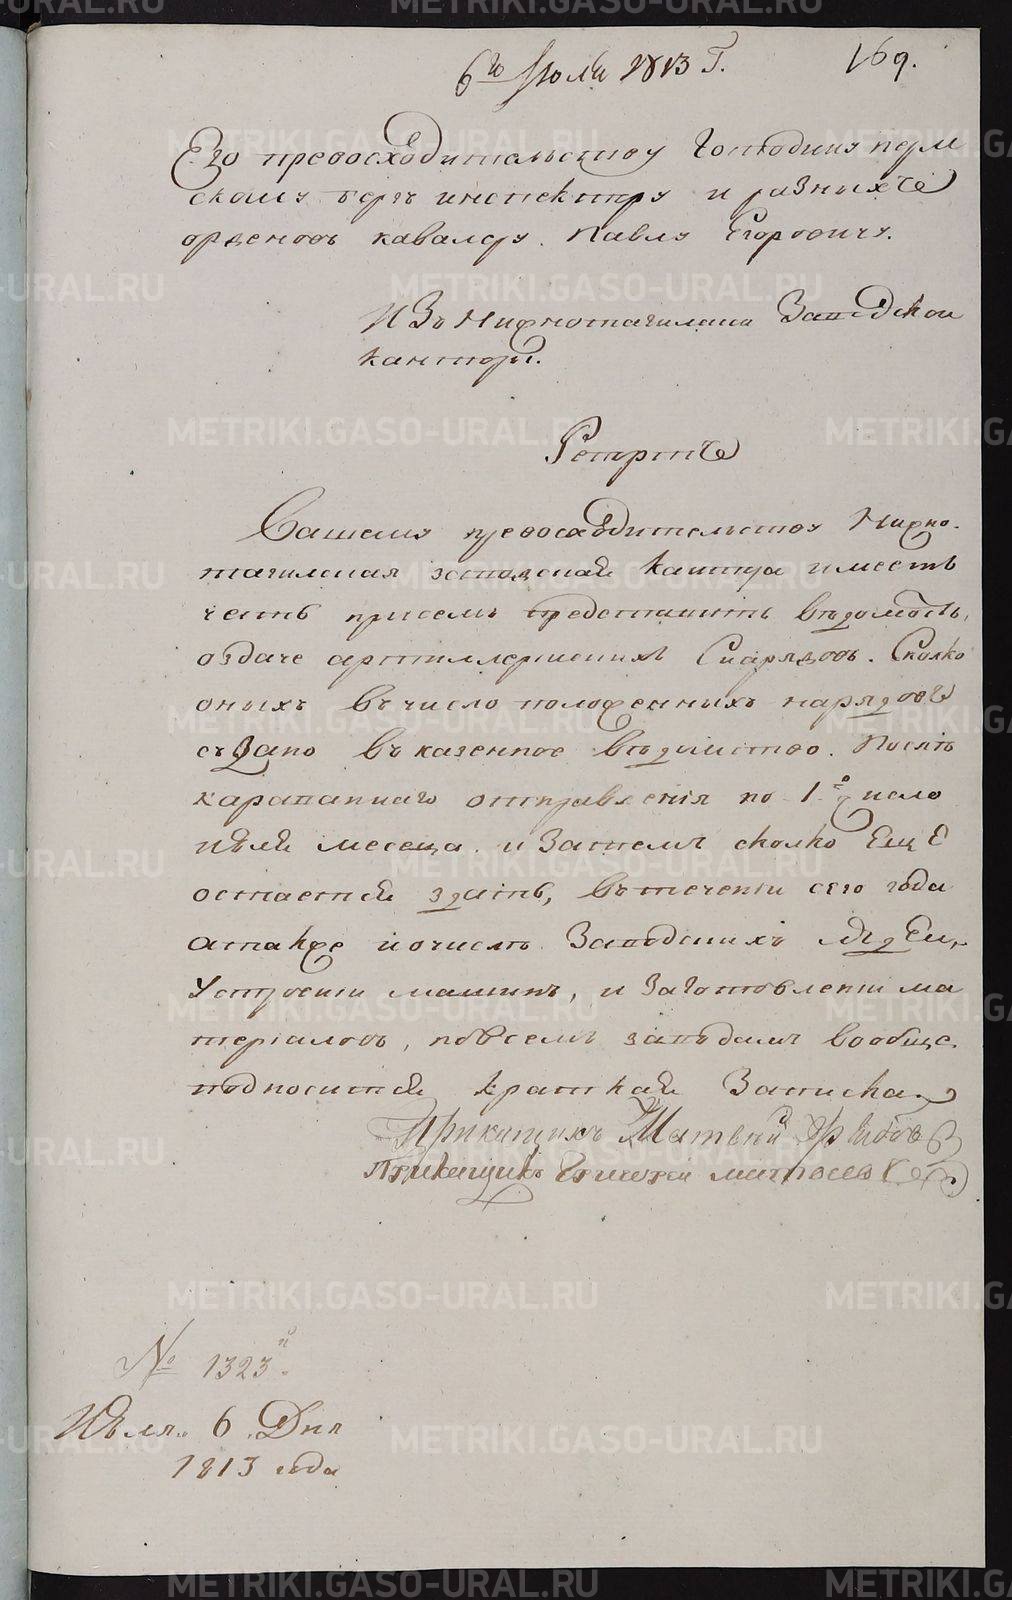 6го Июля 1813 Г. 169.
Его превосходительству Господину перм
скому бергъ инспектору и разныхъ
орденовъ кавалеру. Павлу Егоровичу.
Изъ Нижнотагилской Заводской
канторы.
Репортъ
Вашему превосходительству Нижно-
тагилская заводская кантора имеетъ
честь присемъ представить ведомость,
оздаче артиллерискихъ Снарядовъ. Сколко
оныхъ въ число положенныхъ нарядовъ
сдано въ казенное ведомство. Послѣ
караваннаго отправления по 1е число
июля месеца. и Затемъ сколко Еще
остается здать, въ течении сего года
атакже и очисле Заводскихъ людей,
Устроении машинъ, и Заготовлении ма
териаловъ, повсемъ заводамъ вообще.
подносится краткая Записка.
Прикащикъ Матвей
Прикащикъ Григорей Матвеев
№ 1323й.
Июля. 6. Дня
1813 года
METRIKI.GASO-URAL.RU